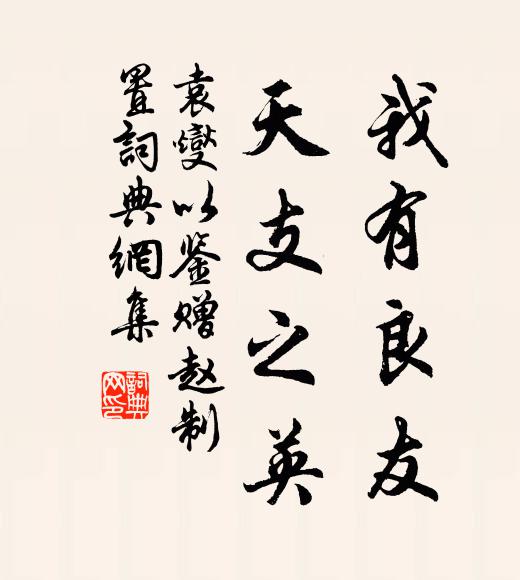 我有良友
天支之英
袁燮以鉴赠赵制
置詞典網集
詞典
网印